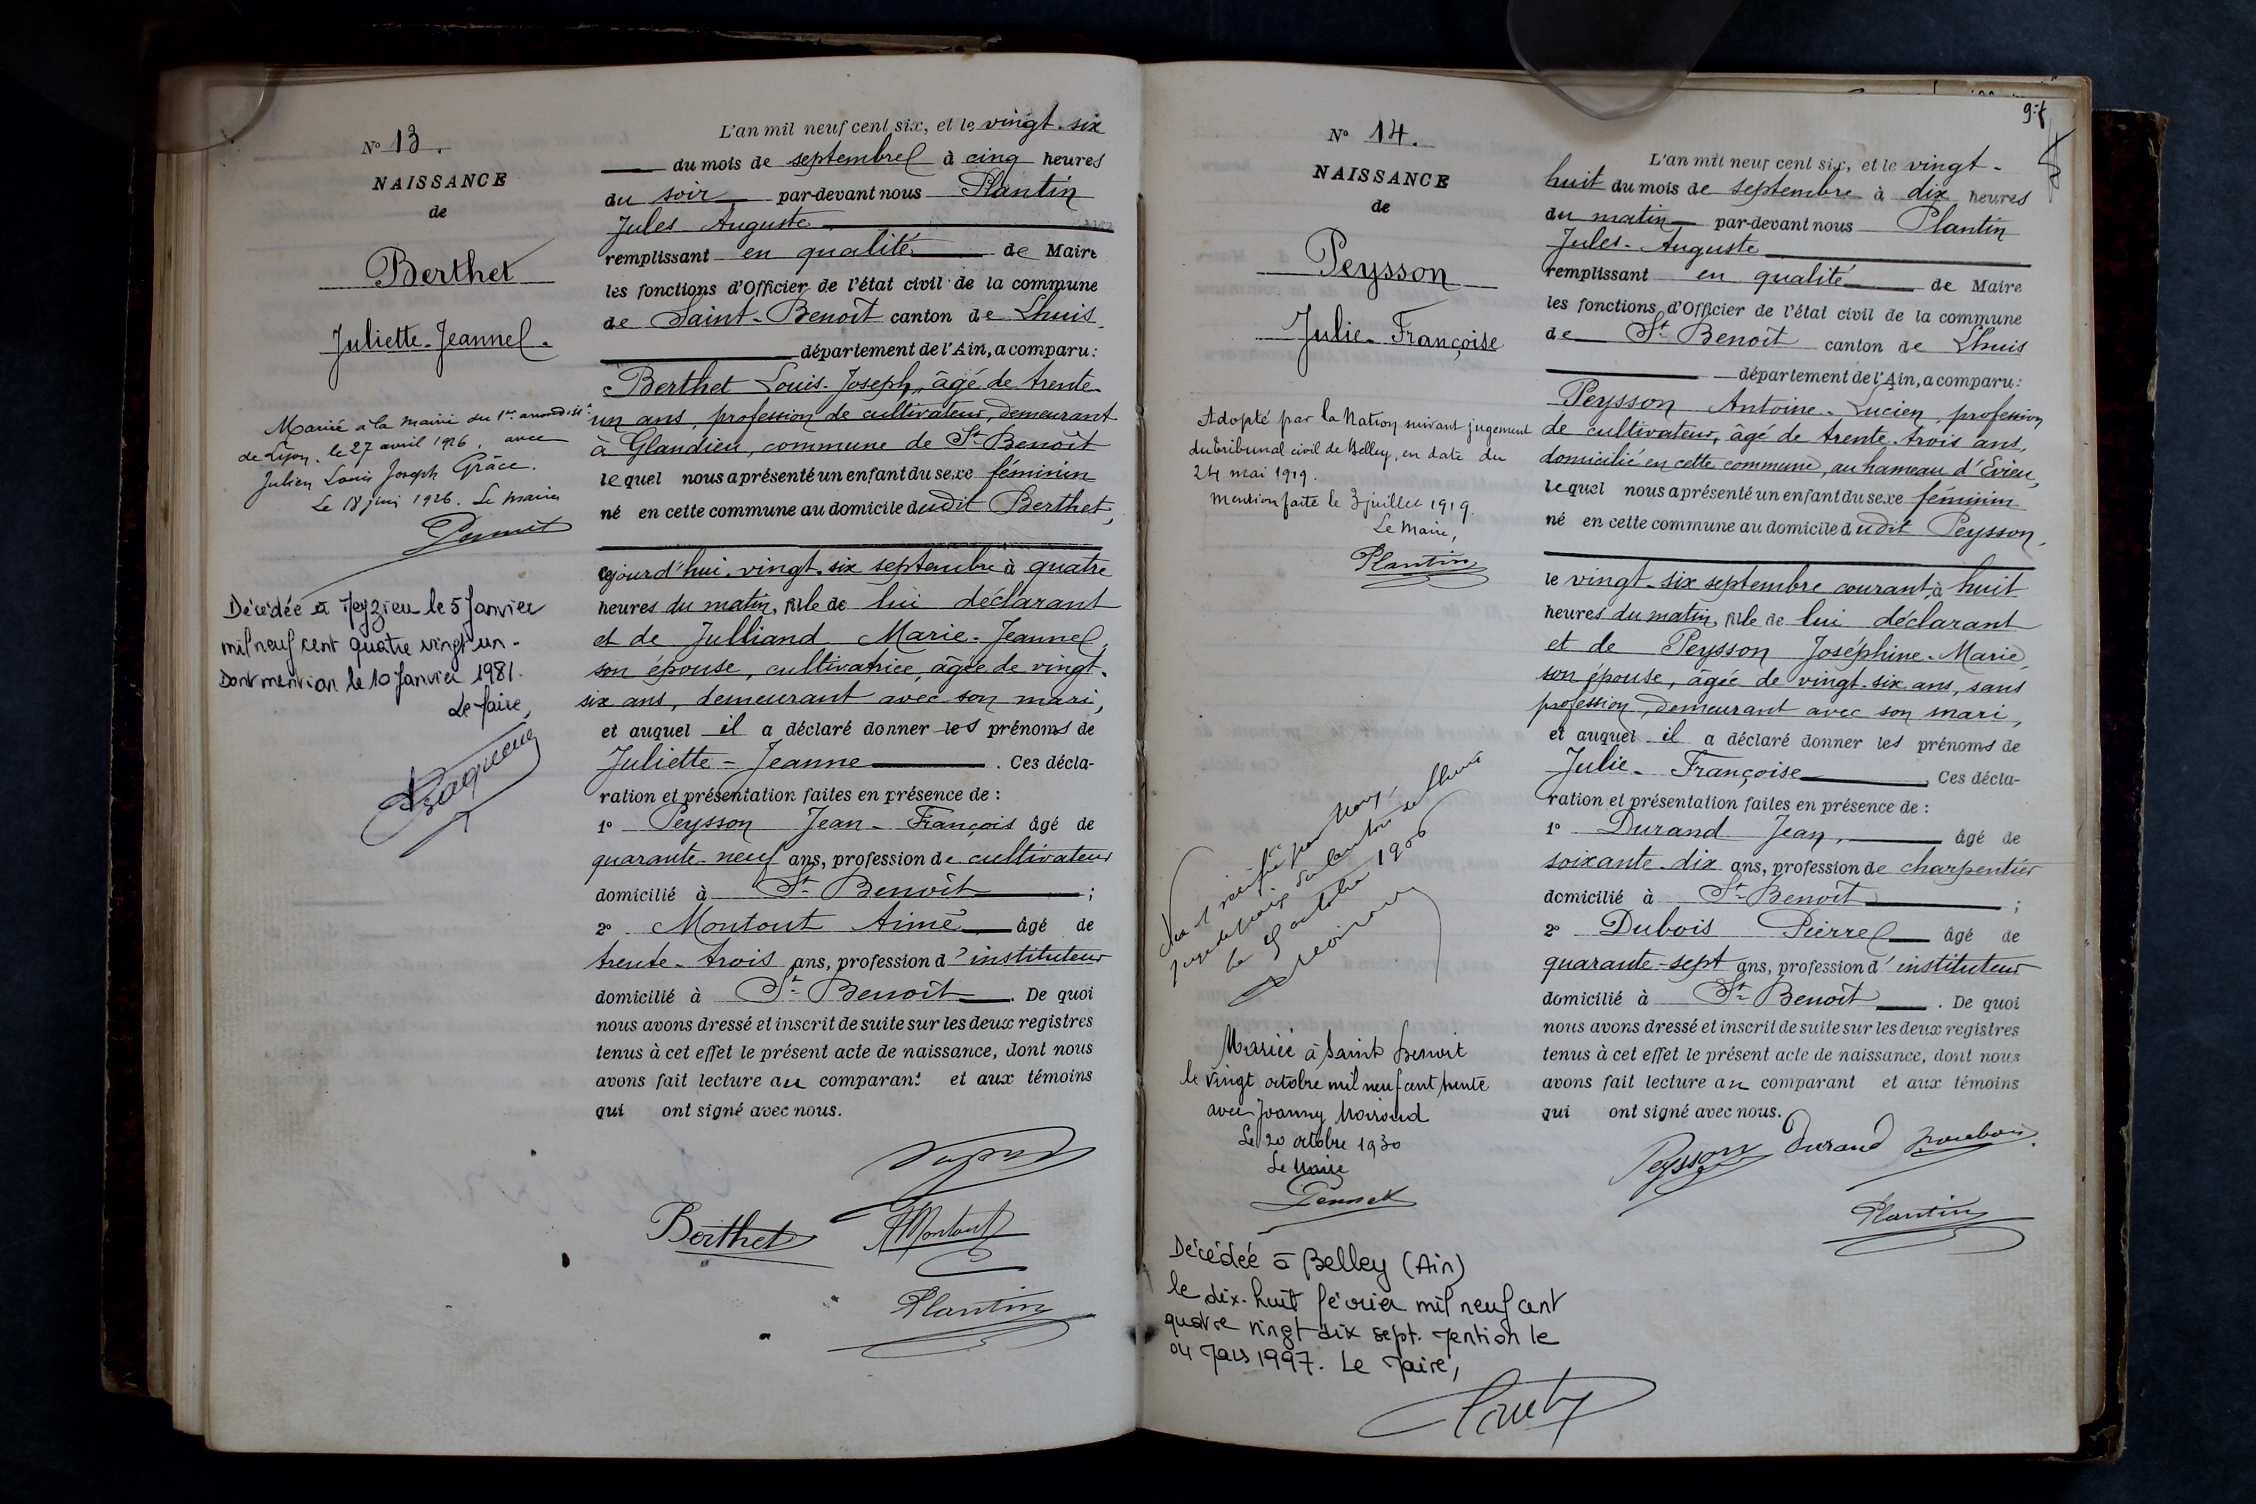 N° 13.
NAISSANCE
de
Berthet
Juliette-Jeanne.
Mariée à la mairie du 1er arrondisst
de Lyon, le 27 avril 1926, avec
Julien Louis Joseph Grâce.
Le 18 juin 1926. Le maire
Décédée à Meyzieu le 5 Janvier
mil neuf cent quatre vingt un.
Dont mention le 10 Janvier 1981.
Le Maire,
L'an mil neuf cent six, et le vingt-six
du mois de septembre à cinq heures
du soir par-devant nous Plantin
Jules Auguste
remplissant en qualité de Maire
les fonctions d'Officier de l'état civil de la commune
de Saint-Benoît canton de Lhuis,
département de l'Ain, a comparu:
Berthet Louis-Joseph, âgé de trente-
un ans, profession de cultivateur, demeurant
à Glandieu, commune de St Benoît
lequel nous a présenté un enfant du sexe féminin
né en cette commune au domicile dudit Berthet,
cejourd'hui vingt-six septembre à quatre
heures du matin, fille de lui déclarant
et de Julliand Marie-Jeanne,
son épouse, cultivatrice, âgée de vingt-
six ans, demeurant avec son mari,
et auquel il a déclaré donner les prénoms de
Juliette-Jeanne. Ces décla-
ration et présentation faites en présence de :
1° Peysson Jean-François âgé de
quarante-neuf ans, profession de cultivateur
domicilié à St Benoît ;
2° Montout Aimé âgé de
trente-trois ans, profession d'instituteur
domicilié à St Benoît. De quoi
nous avons dressé et inscrit de suite sur les deux registres
tenus à cet effet le présent acte de naissance, dont nous
avons fait lecture au comparant et aux témoins
qui ont signé avec nous.
Berthet AMontout
Plantin
N° 14.
NAISSANCE
de
Peysson
Julie-Françoise
Adopté par la Nation suivant jugement
du tribunal civil de Belley, en date du
24 mai 1919.
Mention faite le 3 juillet 1919.
Le Maire,
Plantin
Vu et vérifié par Nous,
juge de paix du canton de Lhuis
le octobre 1906
Mariée à Saint Benoit
le vingt octobre mil neuf cent trente
avec Joanny Moiroud
Le 20 octobre 1930
Le Maire
Décédée à Belley (Ain)
le dix-huit février mil neuf cent
quatre vingt dix sept. Mention le
04 Mars 1997. Le Maire,
L'an mil neuf cent six, et le vingt-
huit du mois de septembre à dix heures
du matin par-devant nous Plantin
Jules-Auguste
remplissant en qualité de Maire
les fonctions d'Officier de l'état civil de la commune
de St Benoît canton de Lhuis
département de l'Ain, a comparu:
Peysson Antoine-Lucien, profession
de cultivateur, âgé de trente-trois ans,
domicilié en cette commune, au hameau d'Evieu,
lequel nous a présenté un enfant du sexe féminin
né en cette commune au domicile dudit Peysson,
le vingt-six septembre courant, à huit
heures du matin, fille de lui déclarant
et de Peysson Joséphine-Marie,
son épouse, âgée de vingt-six ans, sans
profession, demeurant avec son mari,
et auquel il a déclaré donner les prénoms de
Julie-Françoise, Ces décla-
ration et présentation faites en présence de :
1° Durand Jean, âgé de
soixante-dix ans, profession de charpentier
domicilié à St Benoît ;
2° Dubois Pierre âgé de
quarante-sept ans, profession d'instituteur
domicilié à St Benoît. De quoi
nous avons dressé et inscrit de suite sur les deux registres
tenus à cet effet le présent acte de naissance, dont nous
avons fait lecture au comparant et aux témoins
qui ont signé avec nous.
Peysson Durand
Plantin